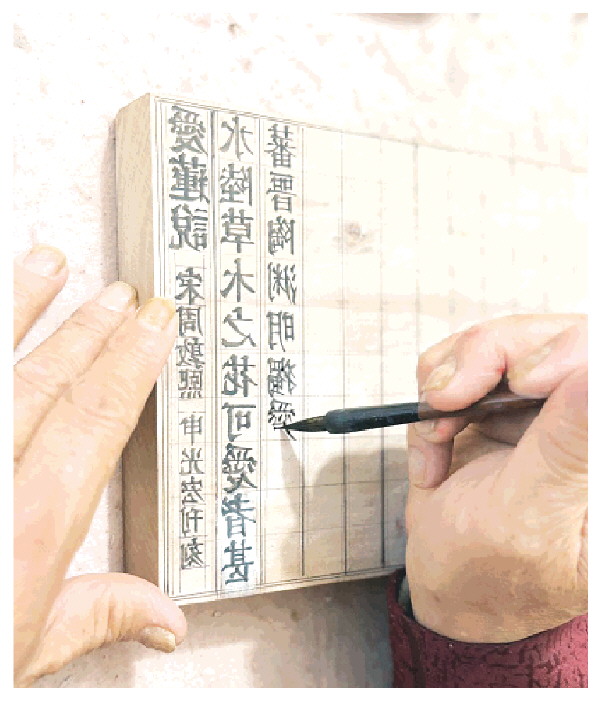 愛蓮說 宋周敦熙 申光宏刊刻
水陸草木之花可愛者甚
蕃晉陶渊明獨愛